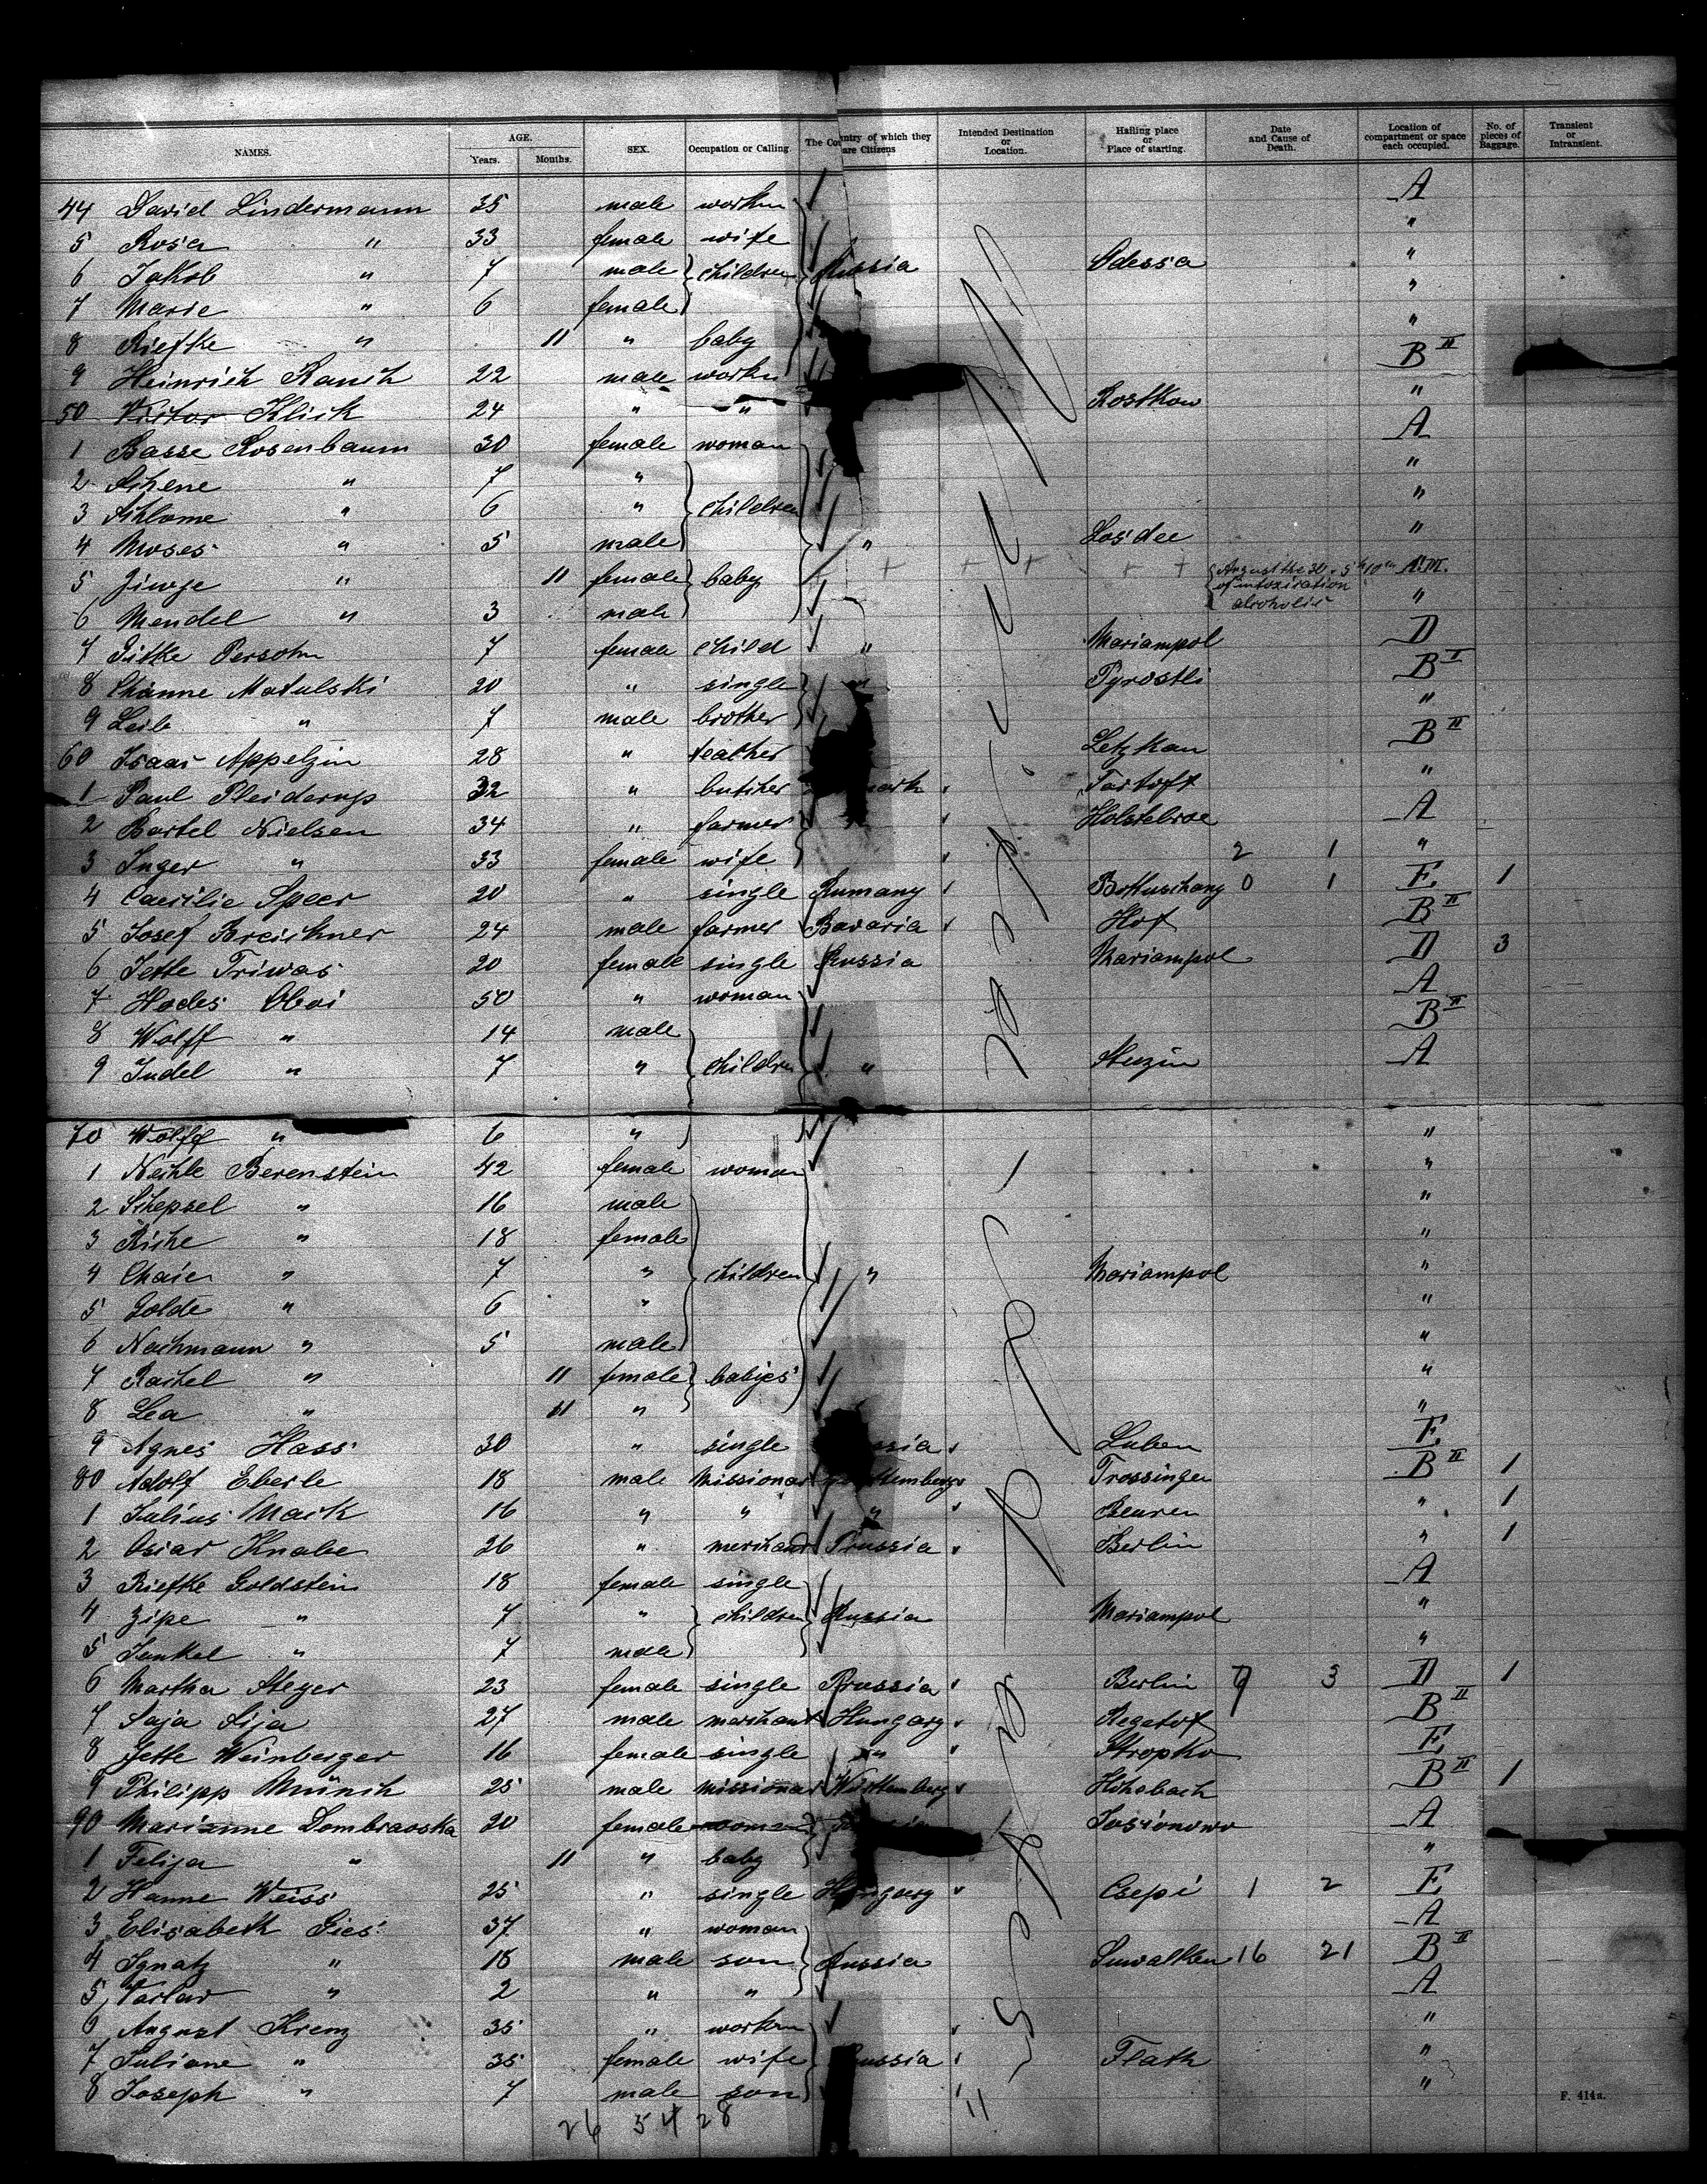 NAMES. AGE. Years. Months. SEX. Occupation or Calling. The Country of which they are Citizens Intended Destination or Location. Hailing place or Place of starting. Date and Cause of Death. Location of compartment or space each occupied. No. of pieces of Baggage. Transient or Intransient.
44 David Lindermann 35 male workm A
5 Rosa " 33 female wife "
6 Jakob " 7 male children Russia Odessa "
7 Marie " 6 female "
8 Riefke " 11 " baby "
9 Heinrich Ranch 22 male workm B II
50 Victor Klick 24 " " Rostkow "
1 Basse Rosenbaum 30 female woman A
2 Schene " 7 " "
3 Schlome " 6 " children "
4 Moses " 5 male " Losdee "
5 Ziwge " 11 female baby August the 30. 5 h 10 m A.M. of intoxication alcoholic
6 Mendel " 3 male "
7 Pitke Persohn 7 female child " Mariampol D
8 Channe Matulski 20 " single " Pyrostli B II
9 Leib " 7 male brother "
60 Isaac Appelzin 28 " teacher Letzkau B II
1 Paul Pleiderup 32 " butcher Tartoft "
2 Bartel Nielsen 34 " farmer Holstebroe A
3 Inger " 33 female wife 2 1 "
4 Caecilie Speer 20 " single Rumany Bottuschany 0 1 E 1
5 Josef Breickner 24 male farmer Bavaria Hof B II
6 Jette Triwas 20 female single Russia Mariampol D 3
7 Hodes Oboi 50 " woman A
8 Wolff " 14 male B II
9 Judel " 7 " children " A
70 Wolff " 6 " "
1 Nechle Berenstein 42 female woman "
2 Schepsel " 16 male "
3 Riche " 18 female "
4 Chaie " 7 " children " Mariampol "
5 Golde " 6 " "
6 Nachmann " 5 male "
7 Rachel " 11 female babies "
8 Lea " 11 " "
9 Agnes Hass 30 " single Luben E
80 Adolf Eberle 18 male Missionar Trossingen B II 1
1 Julius Mack 16 " " " Beuren " 1
2 Oscar Knabe 26 " merchant Prussia Berlin " 1
3 Riefke Goldstein 18 female single A
4 Zipe " 7 " children Russia Mariampol "
5 Jankel " 7 male "
6 Martha Steger 23 female single Prussia Berlin 3 D 1
7 Saja Lija 27 male merchant Hungary Regetof B II
8 Jette Weinberger 16 female single " Stropko E
9 Philipp Münch 25 male missionar Württemberg Höhsbach B II 1
90 Marianne Dombrawska 20 female woman Josionowo A
1 Felija " 11 " baby "
2 Hanne Weiss 25 " single Hungary Csepi 1 2 E
3 Elisabeth Gies 37 " woman A
4 Ignatz " 18 male son Russia Suwalken 16 21 B II
5 " 2 " " A
6 August Krenz 35 " workm "
7 Juliane " 35 female wife Flath "
8 Joseph " 7 male son "
26 54 28 11
F. 414a.